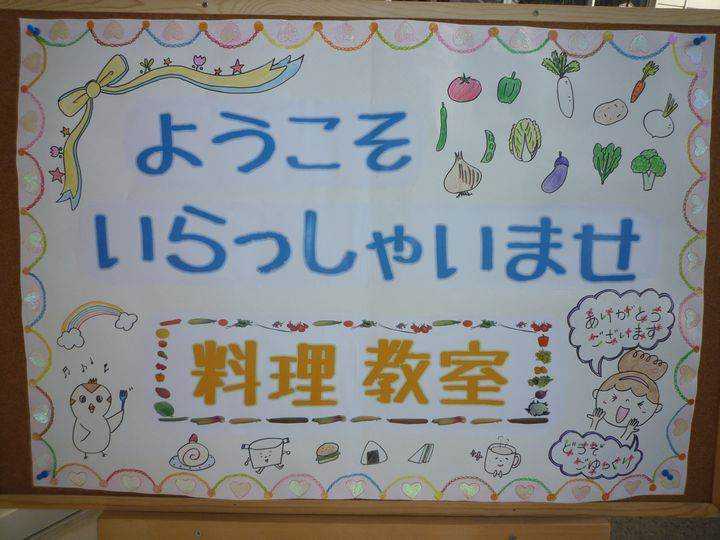 ようこそ
いらっしゃいませ
料理 教室
ありがとう
ございます
どうぞ
ごゆっくり